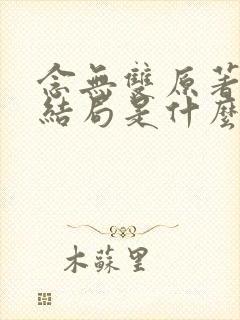 念無雙原著
結局是什麼
木蘇里